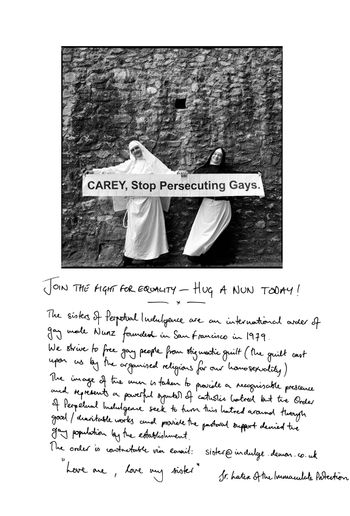 CAREY, Stop Persecuting Gays.
JOIN THE FIGHT FOR EQUALITY — HUG A NUN TODAY!
The sisters of Perpetual Indulgence are an international order of
gay male Nunz founded in San Francisco in 1979.
We strive to free gay people from stigmatic guilt (the guilt cast
upon us by the organised religions for our homosexuality)
The image of the nun is taken to provide a recognisable presence
and represents a powerful symbol of catholic hatred but the Order
of Perpetual Indulgence seek to turn this hatred around through
good / charitable works and provide the pastoral support denied the
gay population by the establishment.
The order is contactable via email: sister@indulge.demon.co.uk
"Love me, love my sister"
Sr. Latex of the Immaculate Protection